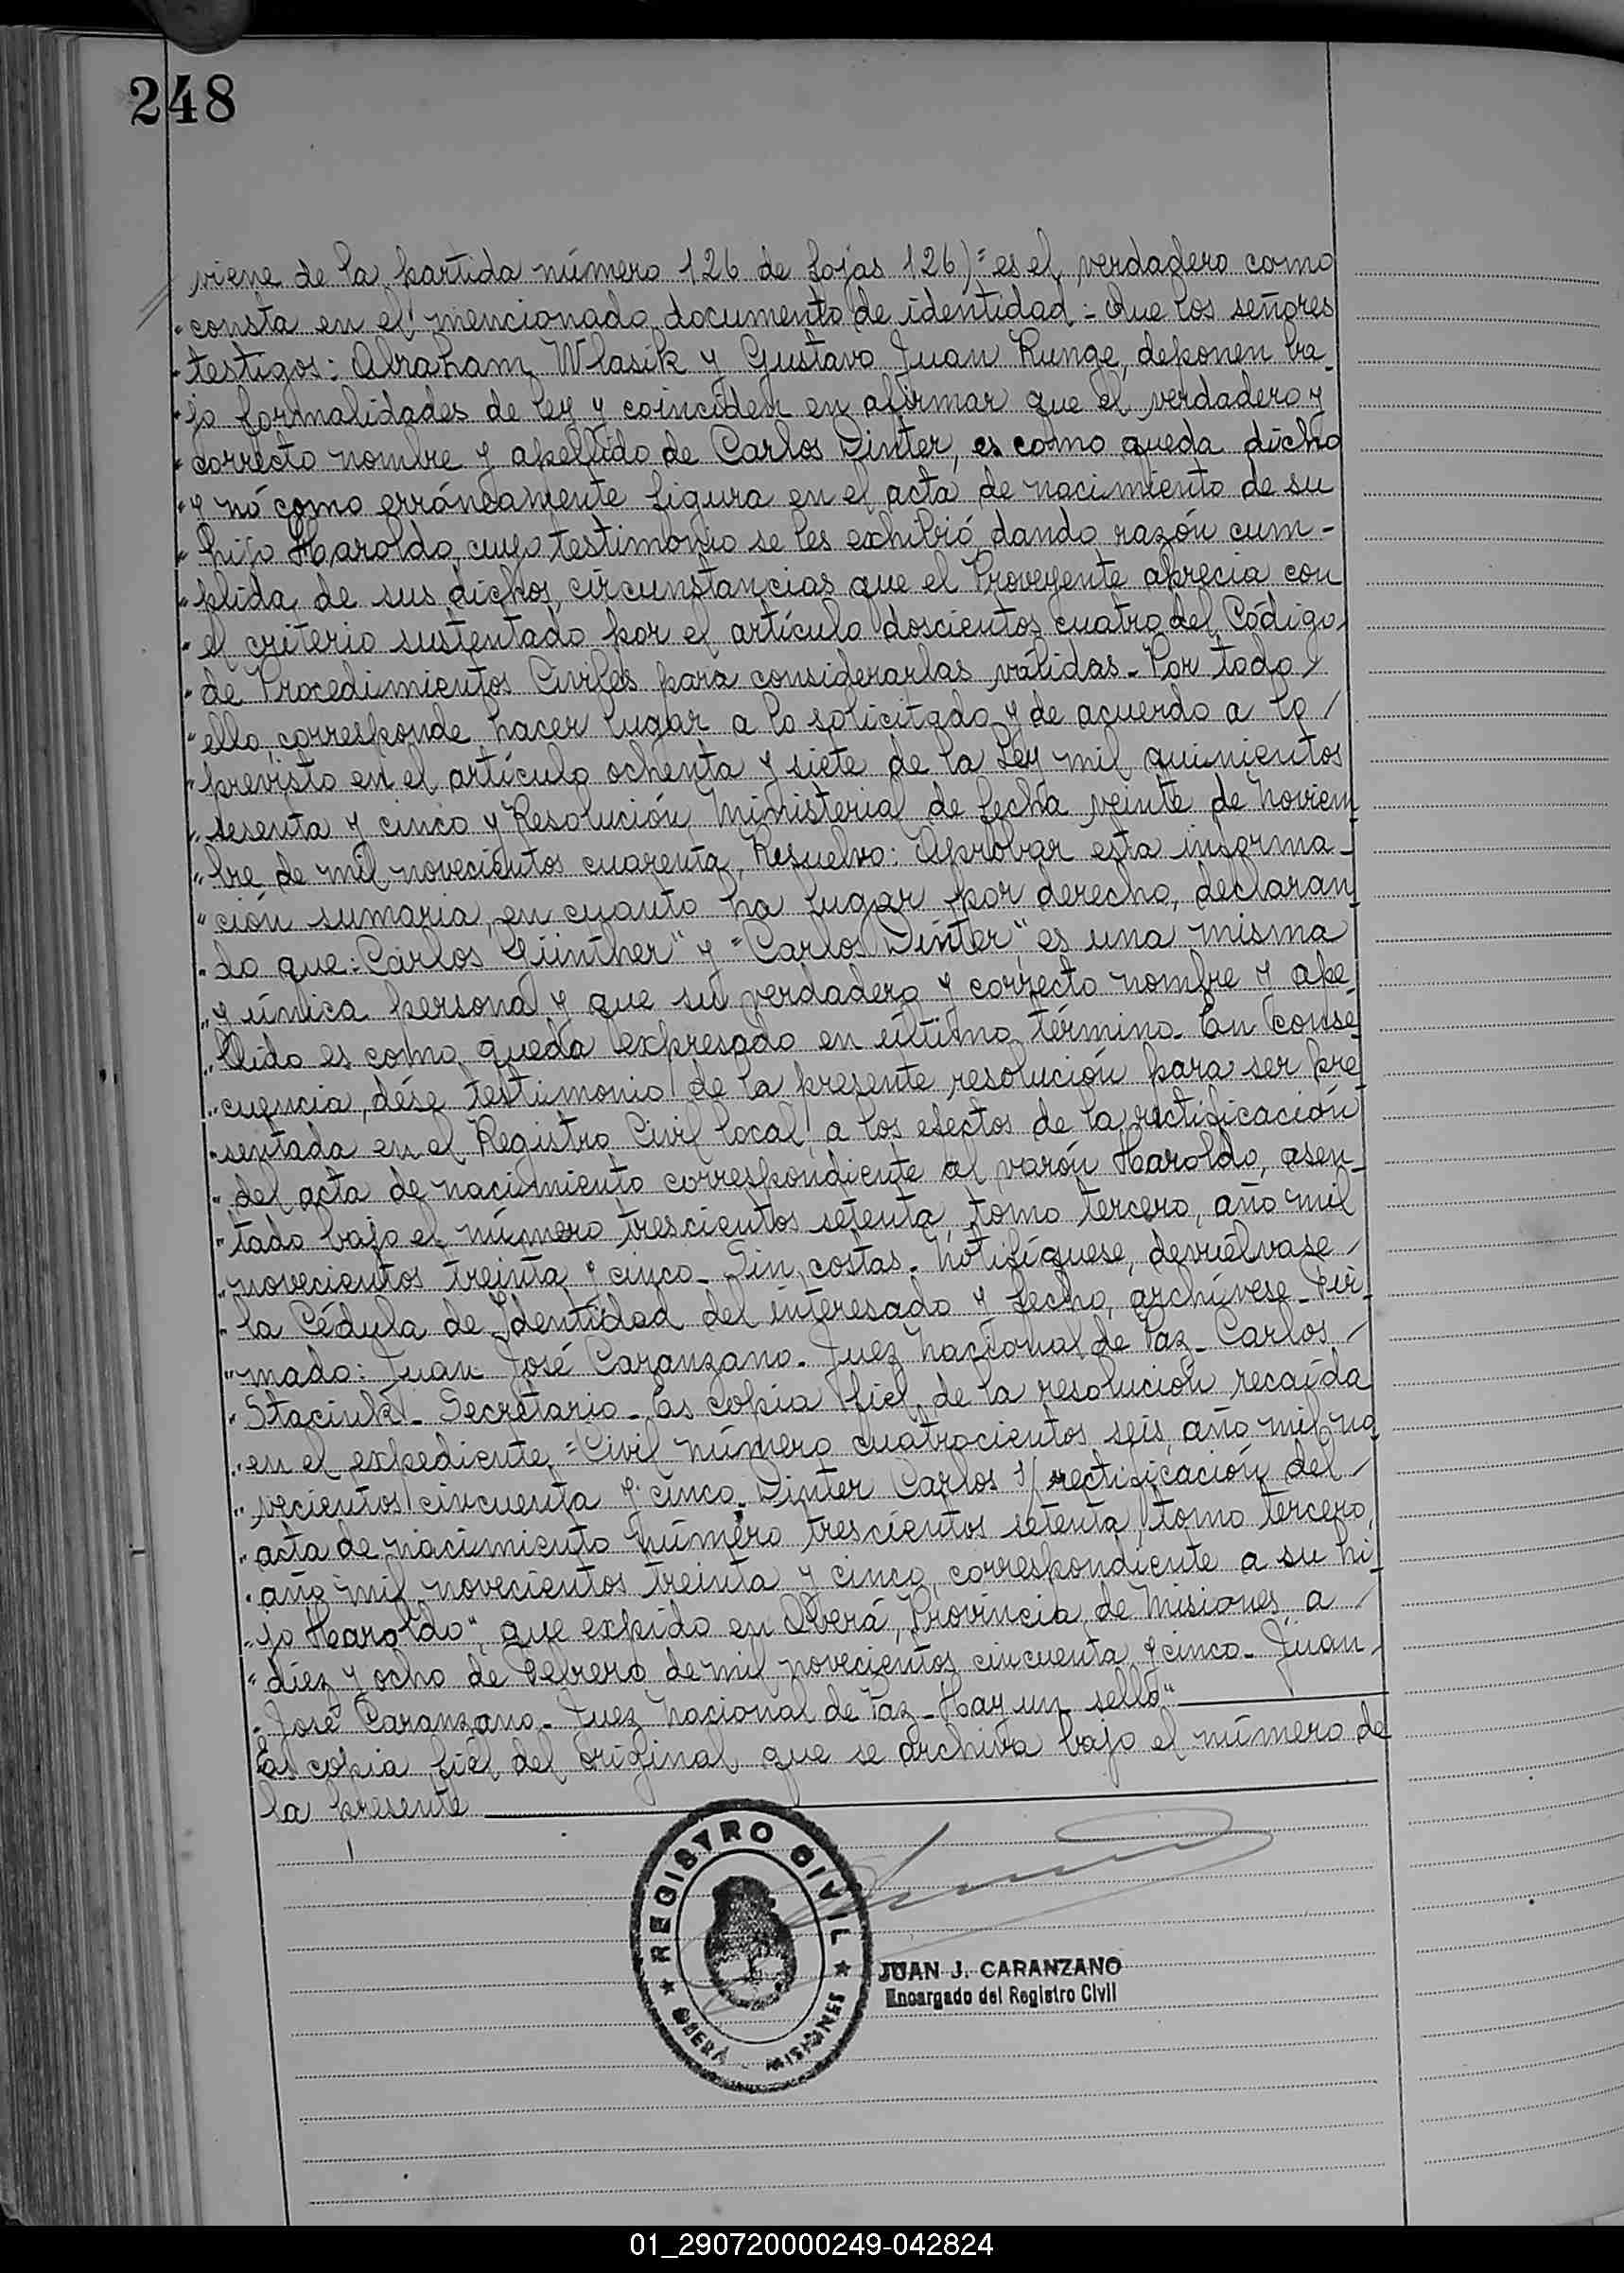 248
viene de la partida número 126 de fojas 126)" es el verdadero como
"consta en el mencionado documento de identidad = Que los señores
"testigos: Abraham Wlasik y Gustavo Juan Runge, deponen ba-
"jo formalidades de ley y coinciden en afirmar que el verdadero y
"correcto nombre y apellido de Carlos Dinter, es como queda dicho
"y nó como erróneamente figura en el acta de nacimiento de su
"hijo Haroldo, cuyo testimonio se les exhibió, dando razón cum-
"plida de sus dichos, circunstancias que el Proveyente aprecia con
"el criterio sustentado por el artículo doscientos cuatro del Código
"de Procedimientos Civiles para considerarlas válidas - Por todo /
"ello, corresponde hacer lugar a lo solicitado y de acuerdo a lo /
"previsto en el artículo ochenta y siete de la Ley mil quinientos
"sesenta y cinco y Resolución Ministerial de fecha veinte de Noviem
"bre de mil novecientos cuarenta, Resuelvo: Aprobar esta informa-
"ción sumaria, en cuanto ha lugar por derecho, declaran
"do que: Carlos Günther" y "Carlos Dinter", es una misma
"y única persona y que su verdadero y correcto nombre y ape
"llido es como queda expresado en último término - En conse
"cuencia, dése testimonio de la presente resolución para ser pre
"sentada en el Registro Civil local a los efectos de la rectificación
"del acta de nacimiento correspondiente al varón Haroldo, asen-
"tado bajo el número trescientos setenta, tomo tercero, año mil
"novecientos treinta y cinco - Sin costas - Notifíquese, devuélvase /
"la Cédula de Identidad del interesado y fecho, archívese - Fir-
"mado: Juan José Caranzano - Juez Nacional de Paz - Carlos /
"Staciuk - Secretario - Es copia fiel de la resolución recaída
"en el expediente "Civil número cuatrocientos seis, año mil no
"vecientos cincuenta y cinco - Dinter Carlos s/ rectificación del /
"acta de nacimiento número trescientos setenta, tomo tercero,
"año mil novecientos treinta y cinco, correspondiente a su hi
"jo Haroldo", que expido en Oberá, Provincia de Misiones, a /
"diez y ocho de Febrero de mil novecientos cincuenta y cinco - Juan
"José Caranzano - Juez Nacional de Paz - Hay un sello"
Es copia fiel del original que se archiva bajo el número de
la presente
REGISTRO CIVIL
OBERÁ - MISIONES
JUAN J. CARANZANO
Encargado del Registro Civil
01_290720000249-042824